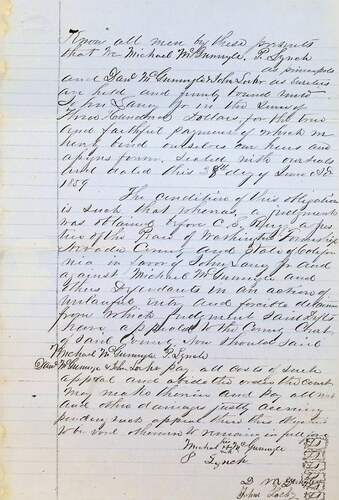 Know all men by these presents
that we Michael McGunnyle, P. Lynch
as principals
and Danl McGunnyle & John Lock as sureties
are held and firmly bound unto
John Lang Jr in the sum of
Three Hundred Dollars, for the true
and faithful payment of which we
hereby bind ourselves our heirs and
assigns forever. Sealed with our seals
and dated this day of June AD
1859
The condition of this obligation
is such that whereas, a judgment
was obtained before C. S. a Jus
tice of the Peace of Washington Township
Nevada County and State of Califor
nia in favor of John Lang Jr and
against Michael McGunnyle and
others Defendants in an action of
unlawful entry and forcible detainer
from which Judgment said Defts
have appealed to the County Court
of said County. Now should said
Michael McGunnyle P. Lynch
Danl McGunnyle & John Lock pay all costs of such
appeal and abide the order the court
may make therein and pay all rent
and other damages justly accruing
pending such appeal then this
to be void otherwise to remain in full force
Michael his McGunnyle
P Lynch
D McGunnyle
John Lock